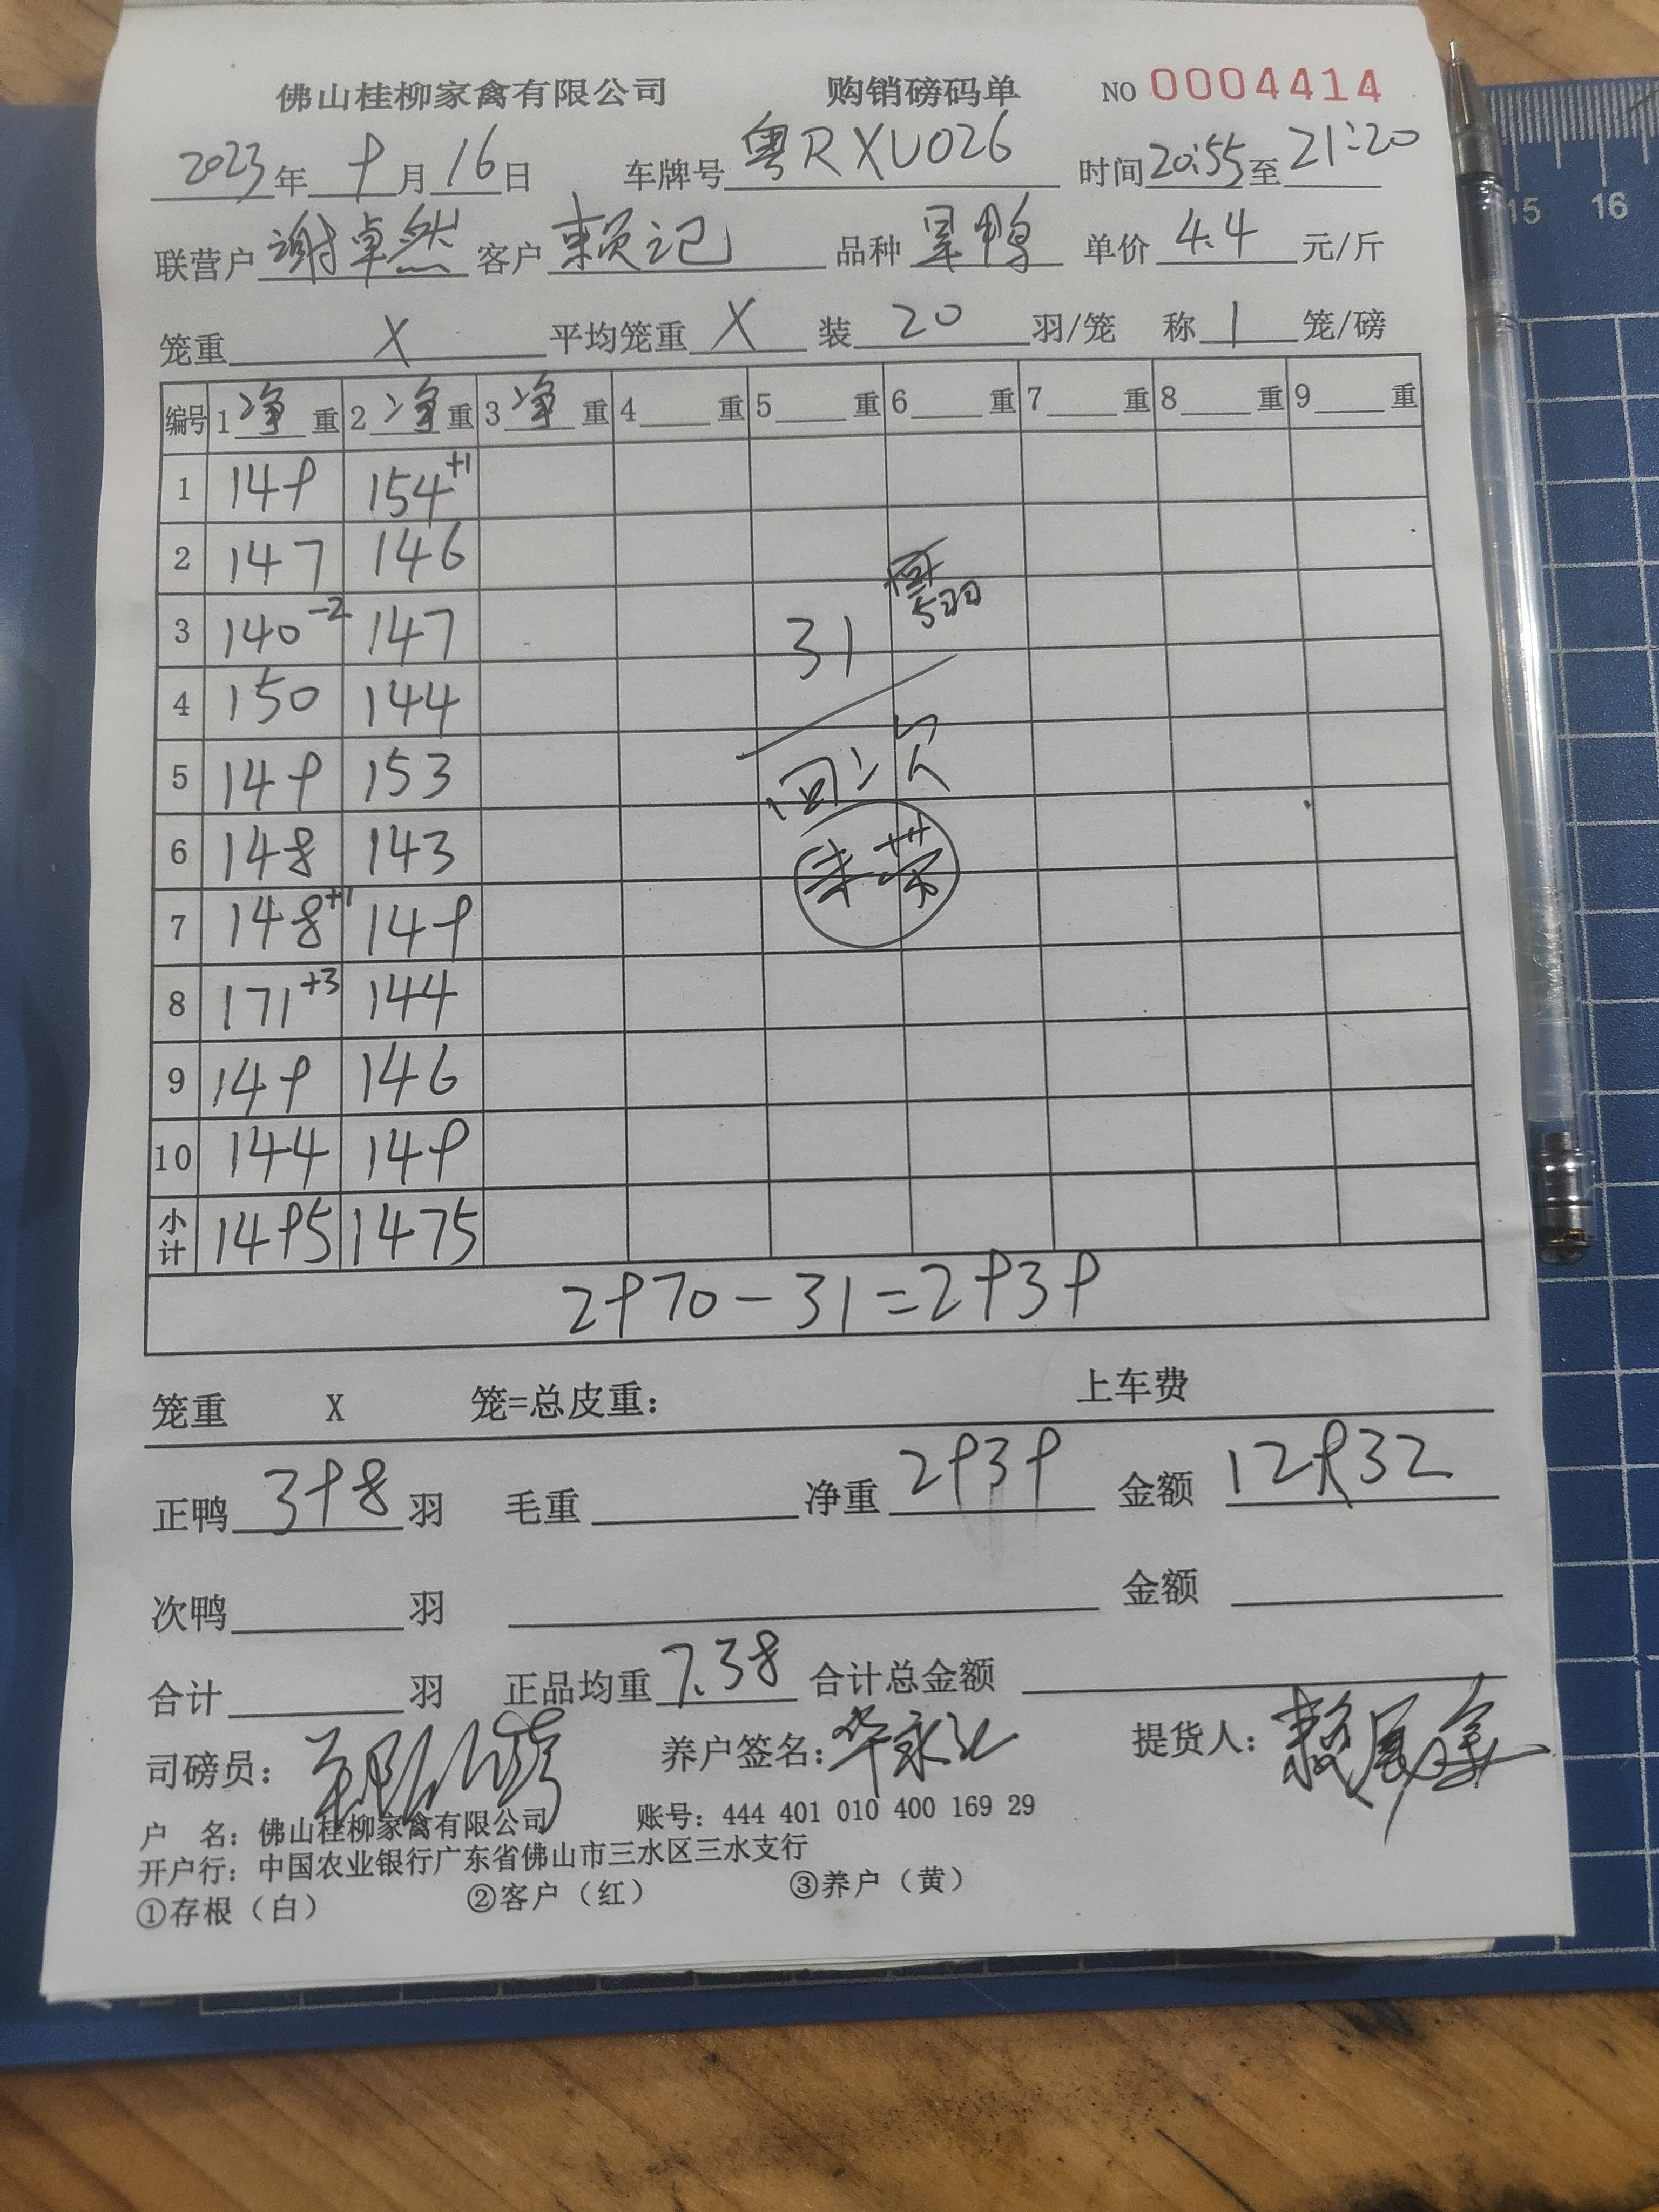 佛山桂柳家禽有限公司 购销磅码单 NO 0004414
2023年 9月 16日 车牌号 粤RXU026 时间 20:55 至 21:20
联营户 谢卓然 客户 赖记 品种 旱鸭 单价 4.4 元/斤
笼重 X 平均笼重 X 装 20 羽/笼 称 1 笼/磅
编号 1 净 重 2 净 重 3 净 重 4 重 5 重 6 重 7 重 8 重 9 重
1 149 154+1
2 147 146
3 140-2 147
31
4 150 144
5 149 153
回次
6 148 143
7 148+1 149
8 171+3 144
9 149 146
10 144 149
小计 1495 1475
2970-31=2939
笼重 X 笼=总皮重: 上车费
正鸭 398 羽 毛重 净重 2939 金额 12932
次鸭 羽 金额
合计 羽 正品均重 7.38 合计总金额
司磅员: 养户签名: 提货人:
户 名: 佛山桂柳家禽有限公司 账号: 444 401 010 400 169 29
开户行: 中国农业银行广东省佛山市三水区三水支行
①存根(白) ②客户(红) ③养户(黄)
15 16